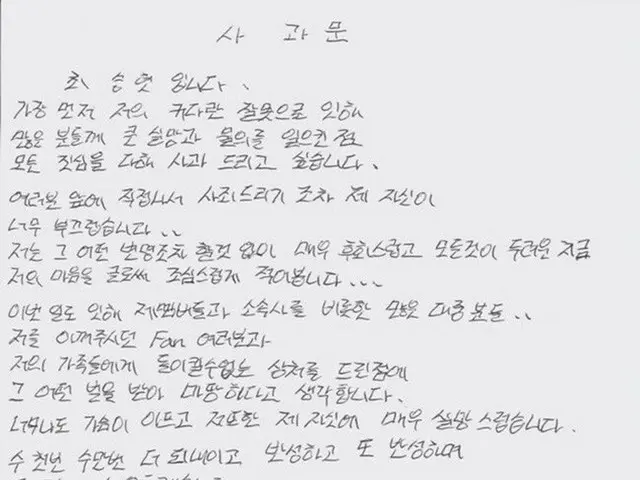 사 과 문
최 승 현 입니다.
가장 먼저 저의 커다란 잘못으로 인해
많은 분들께 큰 실망과 물의를 일으킨 점
모든 진심을 다해 사과 드리고 싶습니다.
여러분 앞에 직접나서 사죄드리기 조차 제 자신이
너무 부끄럽습니다..
저는 그 어떤 변명조차 할것 없이 매우 후회스럽고 모든것이 두려운 지금
저의 마음을 글로써 조심스럽게 적어봅니다...
이번 일로 인해 제멤버들과 소속사를 비롯한 많은 대중 분들..
저를 아껴주시던 Fan 여러분과
저의 가족들에게 돌이킬수없는 상처를 드린점에
그 어떤 벌을 받아 마땅하다고 생각합니다.
너무나도 가슴이 아프고 저또한 제 자신에 매우 실망 스럽습니다.
수 천번 수만번 더 되내이고 반성하고 또 반성하며